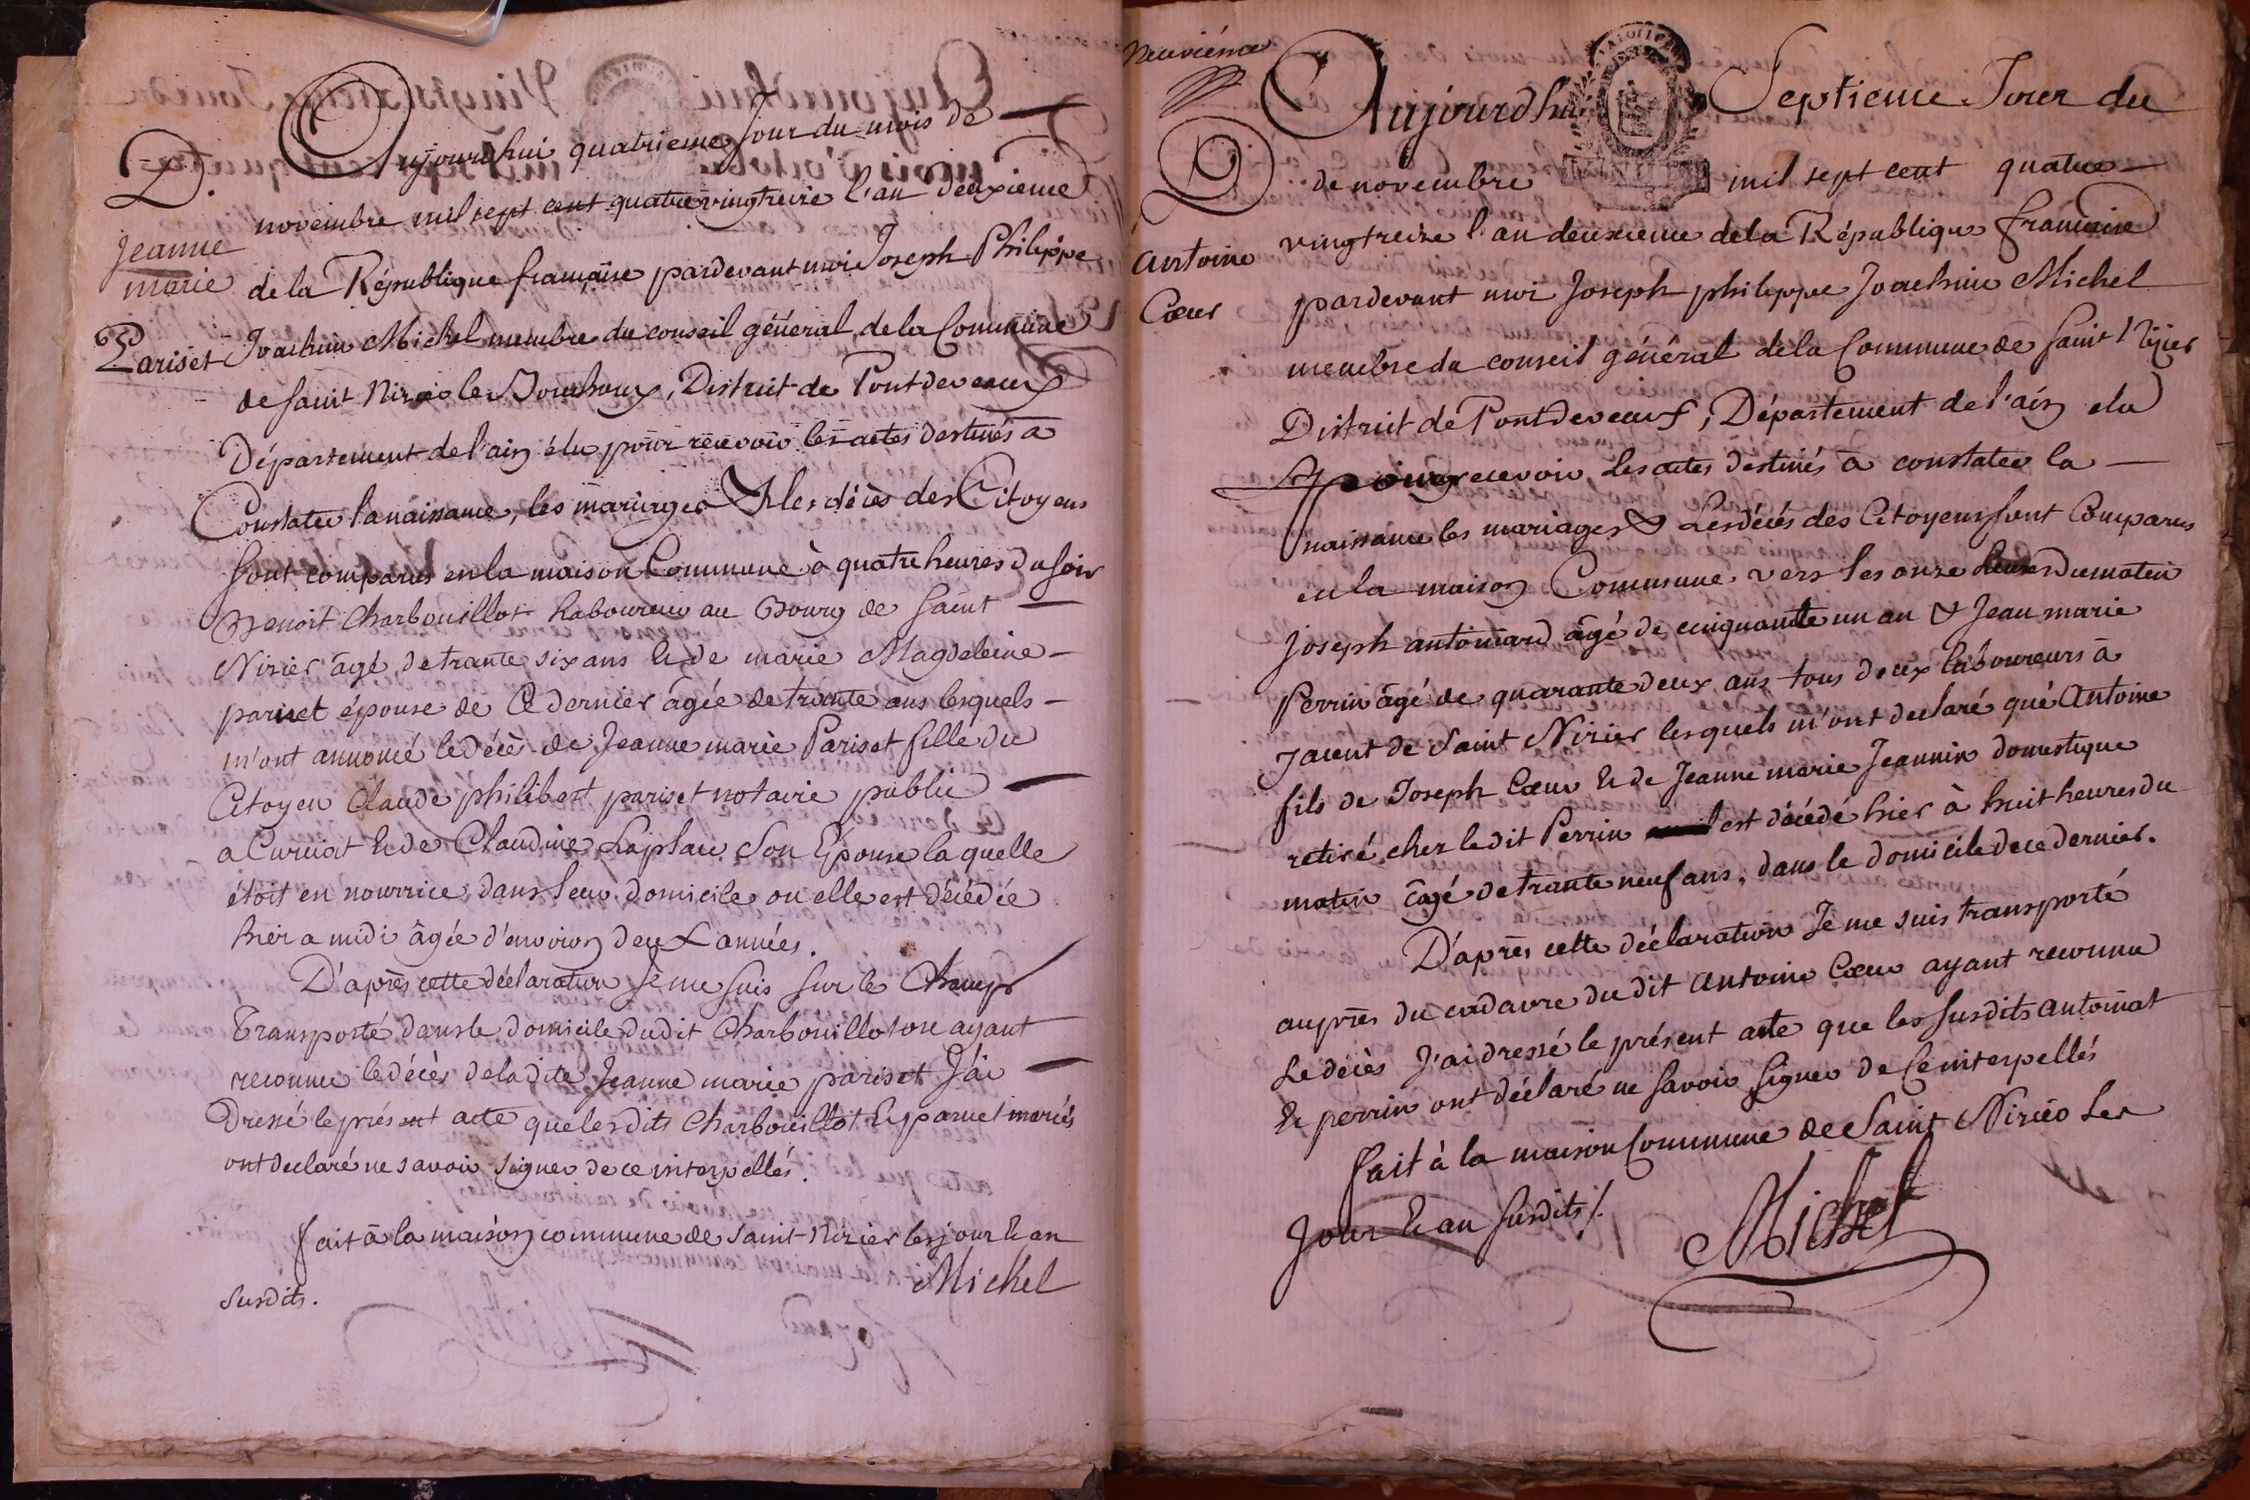 D.
Jeanne
marie
Pariset
Aujourdhui quatrieme Jour du mois de
novembre mil sept cent quatrevingtreize l'an deuxieme
de la République française pardevant moi Joseph Philippe
Joachim Michel membre du conseil général de la Commune
de saint Nizier le Bouchoux, District de Pontdevaux
Département de l'ain élu pour recevoir les actes destinés à
Constater la naissance, les mariages & les décès des Citoyens
sont comparus en la maison Commune à quatre heures du soir
Benoit Charbouillot Laboureur au Bourg de saint
Nizier âgé de trante six ans & de marie Magdeleine
pariset épouse de Ce dernier âgée de trante ans lesquels
m'ont annoncé le décès de Jeanne marie Pariset fille du
Citoyen Claude philibert pariset notaire public
a Curciat & de Claudine Laplace son Epouse laquelle
étoit en nourrice dans leur domicile ou elle est décédée
hier a midi âgée d'environ deux années.
D'après cette déclaration Je me suis sur le Champ
Transporté dans le domicile dudit Charbouillot ou ayant
reconnu le décès de la dite Jeanne marie pariset J'ai
Dressé le présent acte que lesdits Charbouillot & pariset mariés
ont declaré ne savoir signer de ce interpellés.
fait à la maison commune de saint-Nizier les jour & an
susdits.
Michel
neuvième
D
antoine
Cœur
Aujourdhui Septieme Jour du
de novembre mil sept cent quatre
vingtreize l'an deuxieme de la République française
pardevant moi Joseph philippe Joachim Michel
membre du conseil général de la Commune de saint Nizier
District de Pontdevaux, Département de l'ain elu
pour recevoir les actes destinés à constater la
naissance les mariages & les décés des Citoyens sont Comparus
en la maison Commune vers les onze heures du matin
Joseph antoinard âgé de cinquante un an & Jean marie
Perrin âgé de quarante deux ans tous deux laboureurs à
de Saint Nizier lesquels m'ont declaré que Antoine
fils de Joseph Cœur & de Jeanne marie Jeannin domestique
retiré chez ledit Perrin est décédé hier à huit heures du
matin âgé de trante neuf ans, dans le domicile de ce dernier.
D'après cette déclaration Je me suis transporté
auprès du cadavre du dit antoine Cœur ayant reconnu
Le décès J'ai dressé le présent acte que les susdits antoinat
& perrin ont déclaré ne savoir signer de Ce interpellés
fait à la maison Commune de Saint Nizier Les
Jour & an susdits ./.
Michel